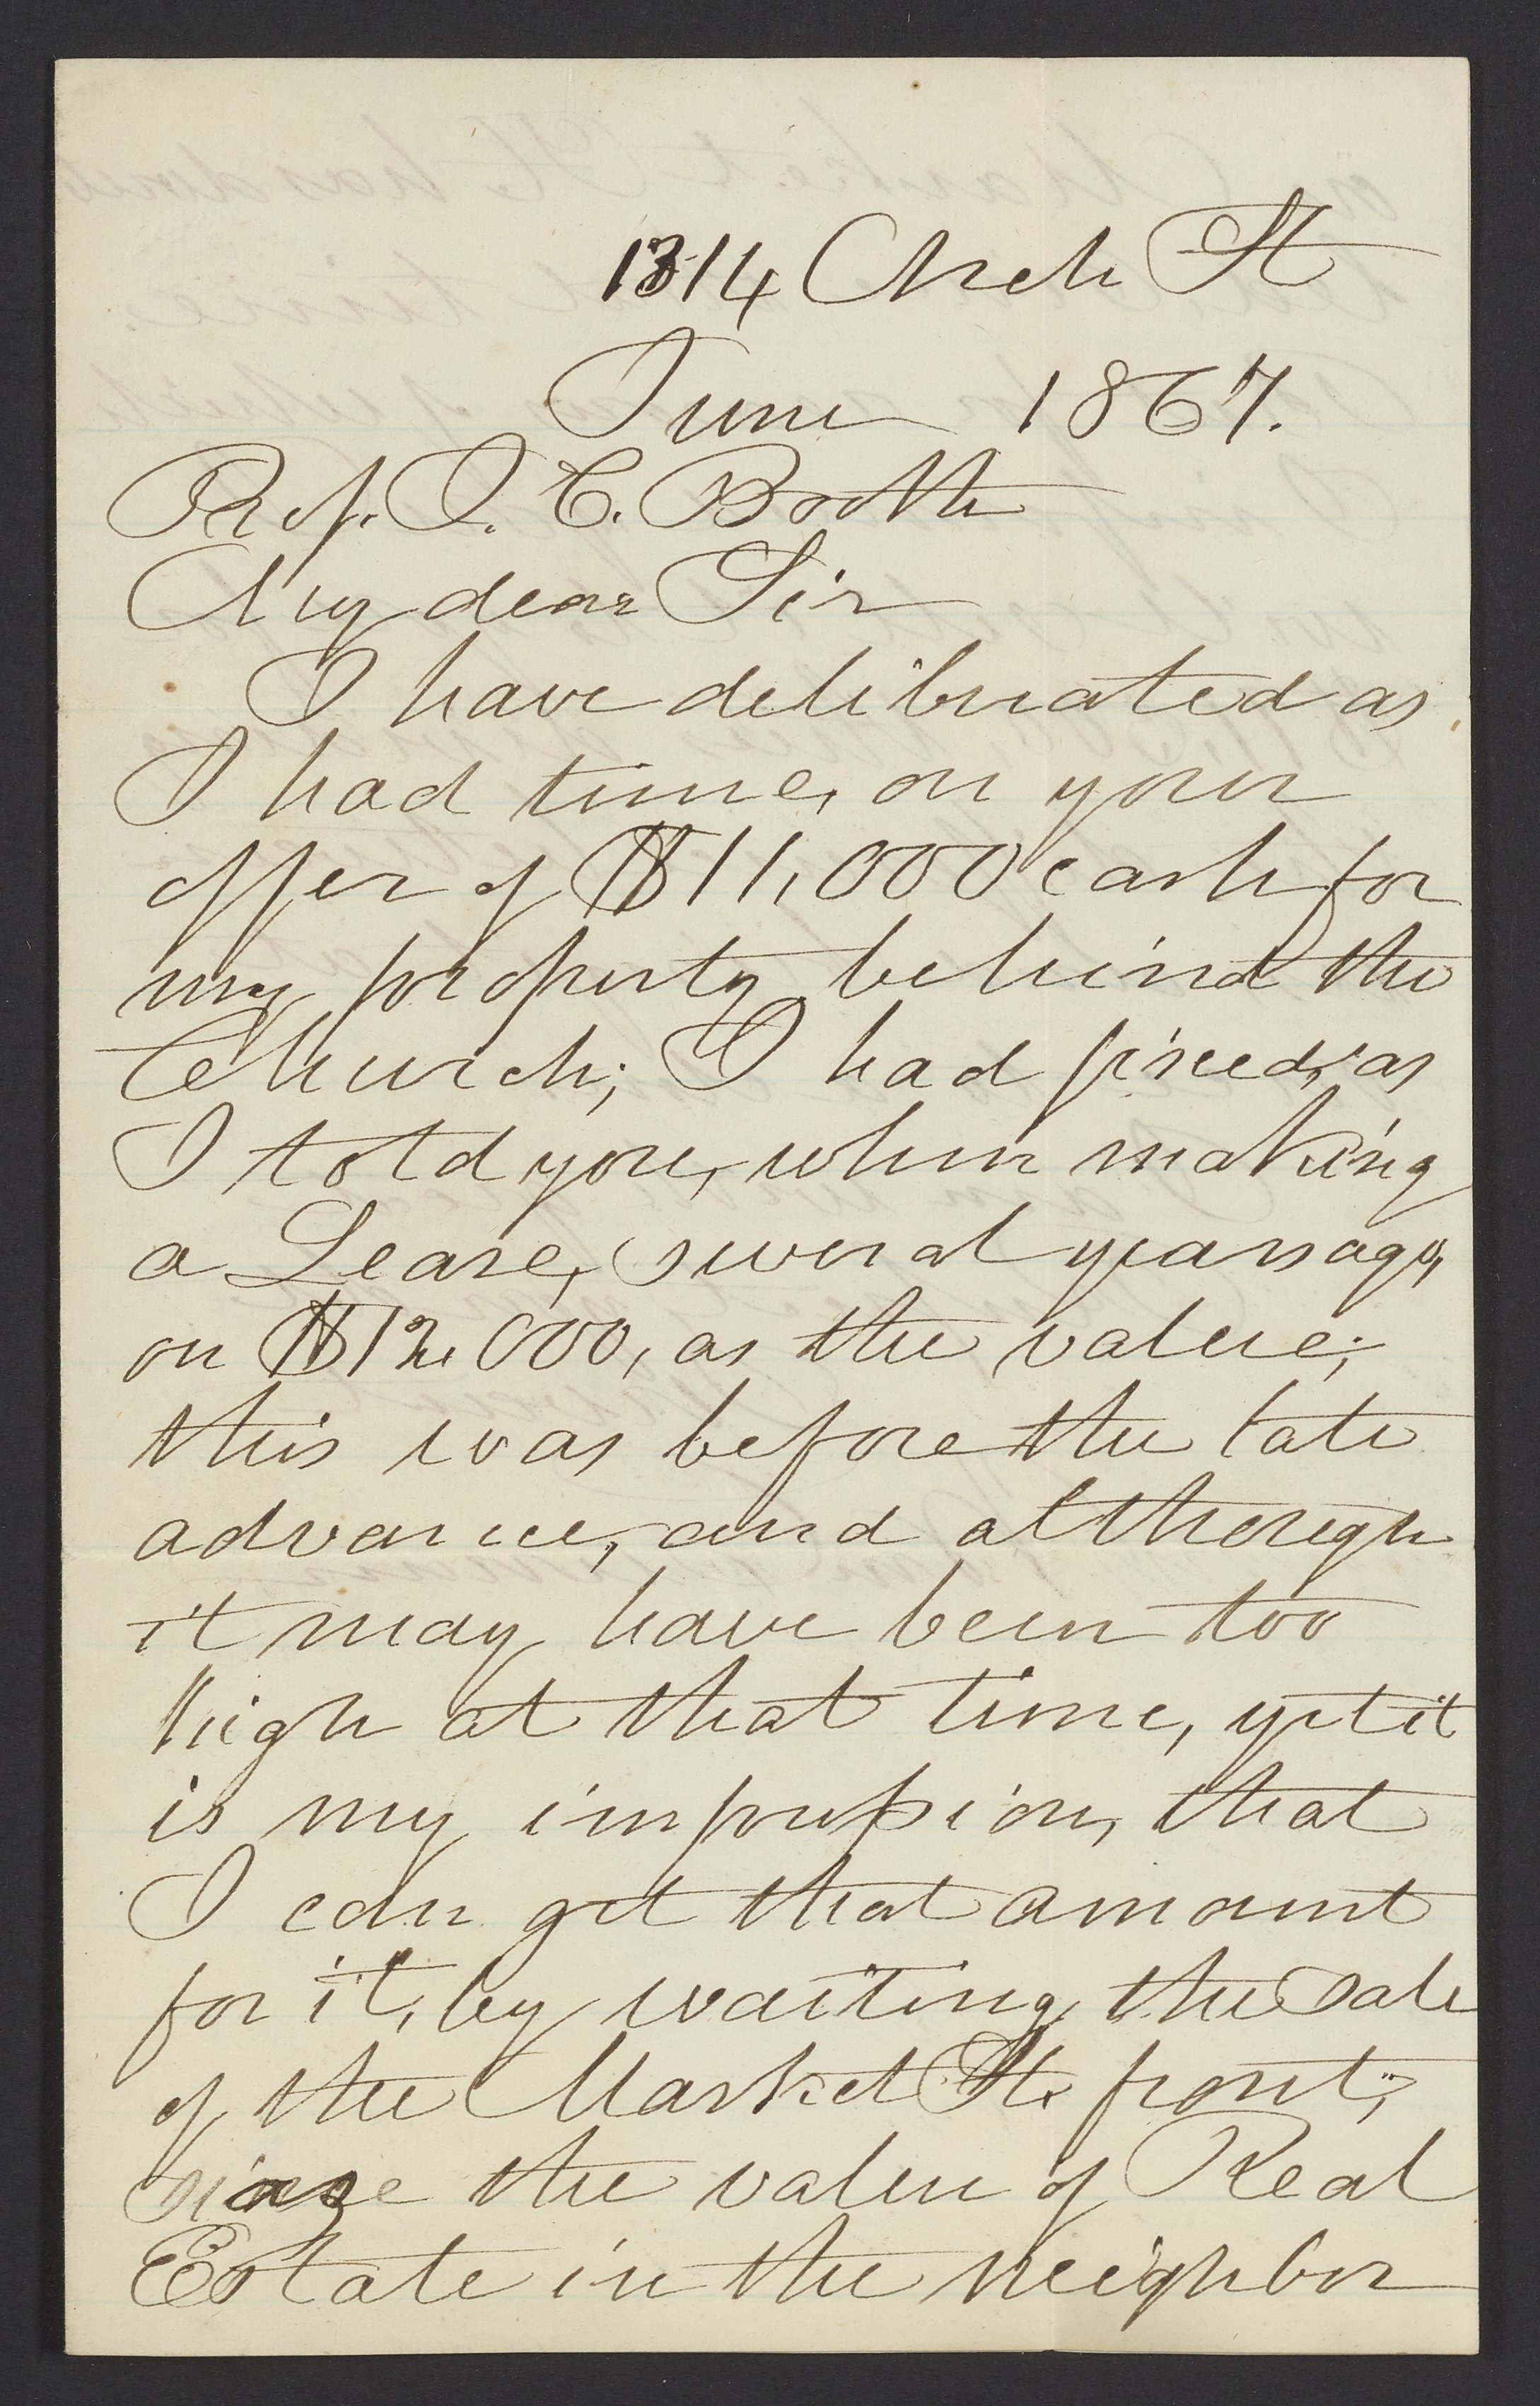 1314 Arch St
June 1867.
Prof. J. C. Booth
My dear Sir
I have deliberated as
I had time, on your
offer of $11,000 cash for
my property behind the
Church; I had fixed, as
I told you, when making
a Lease, several years ago,
on $12,000, as the value;
this was before the late
advance, and although
it may have been too
high at that time, yet it
is my impression, that
I can get that amount
for it, by waiting the sale
of the Market St. front;
since the value of Real
Estate in the neighbor